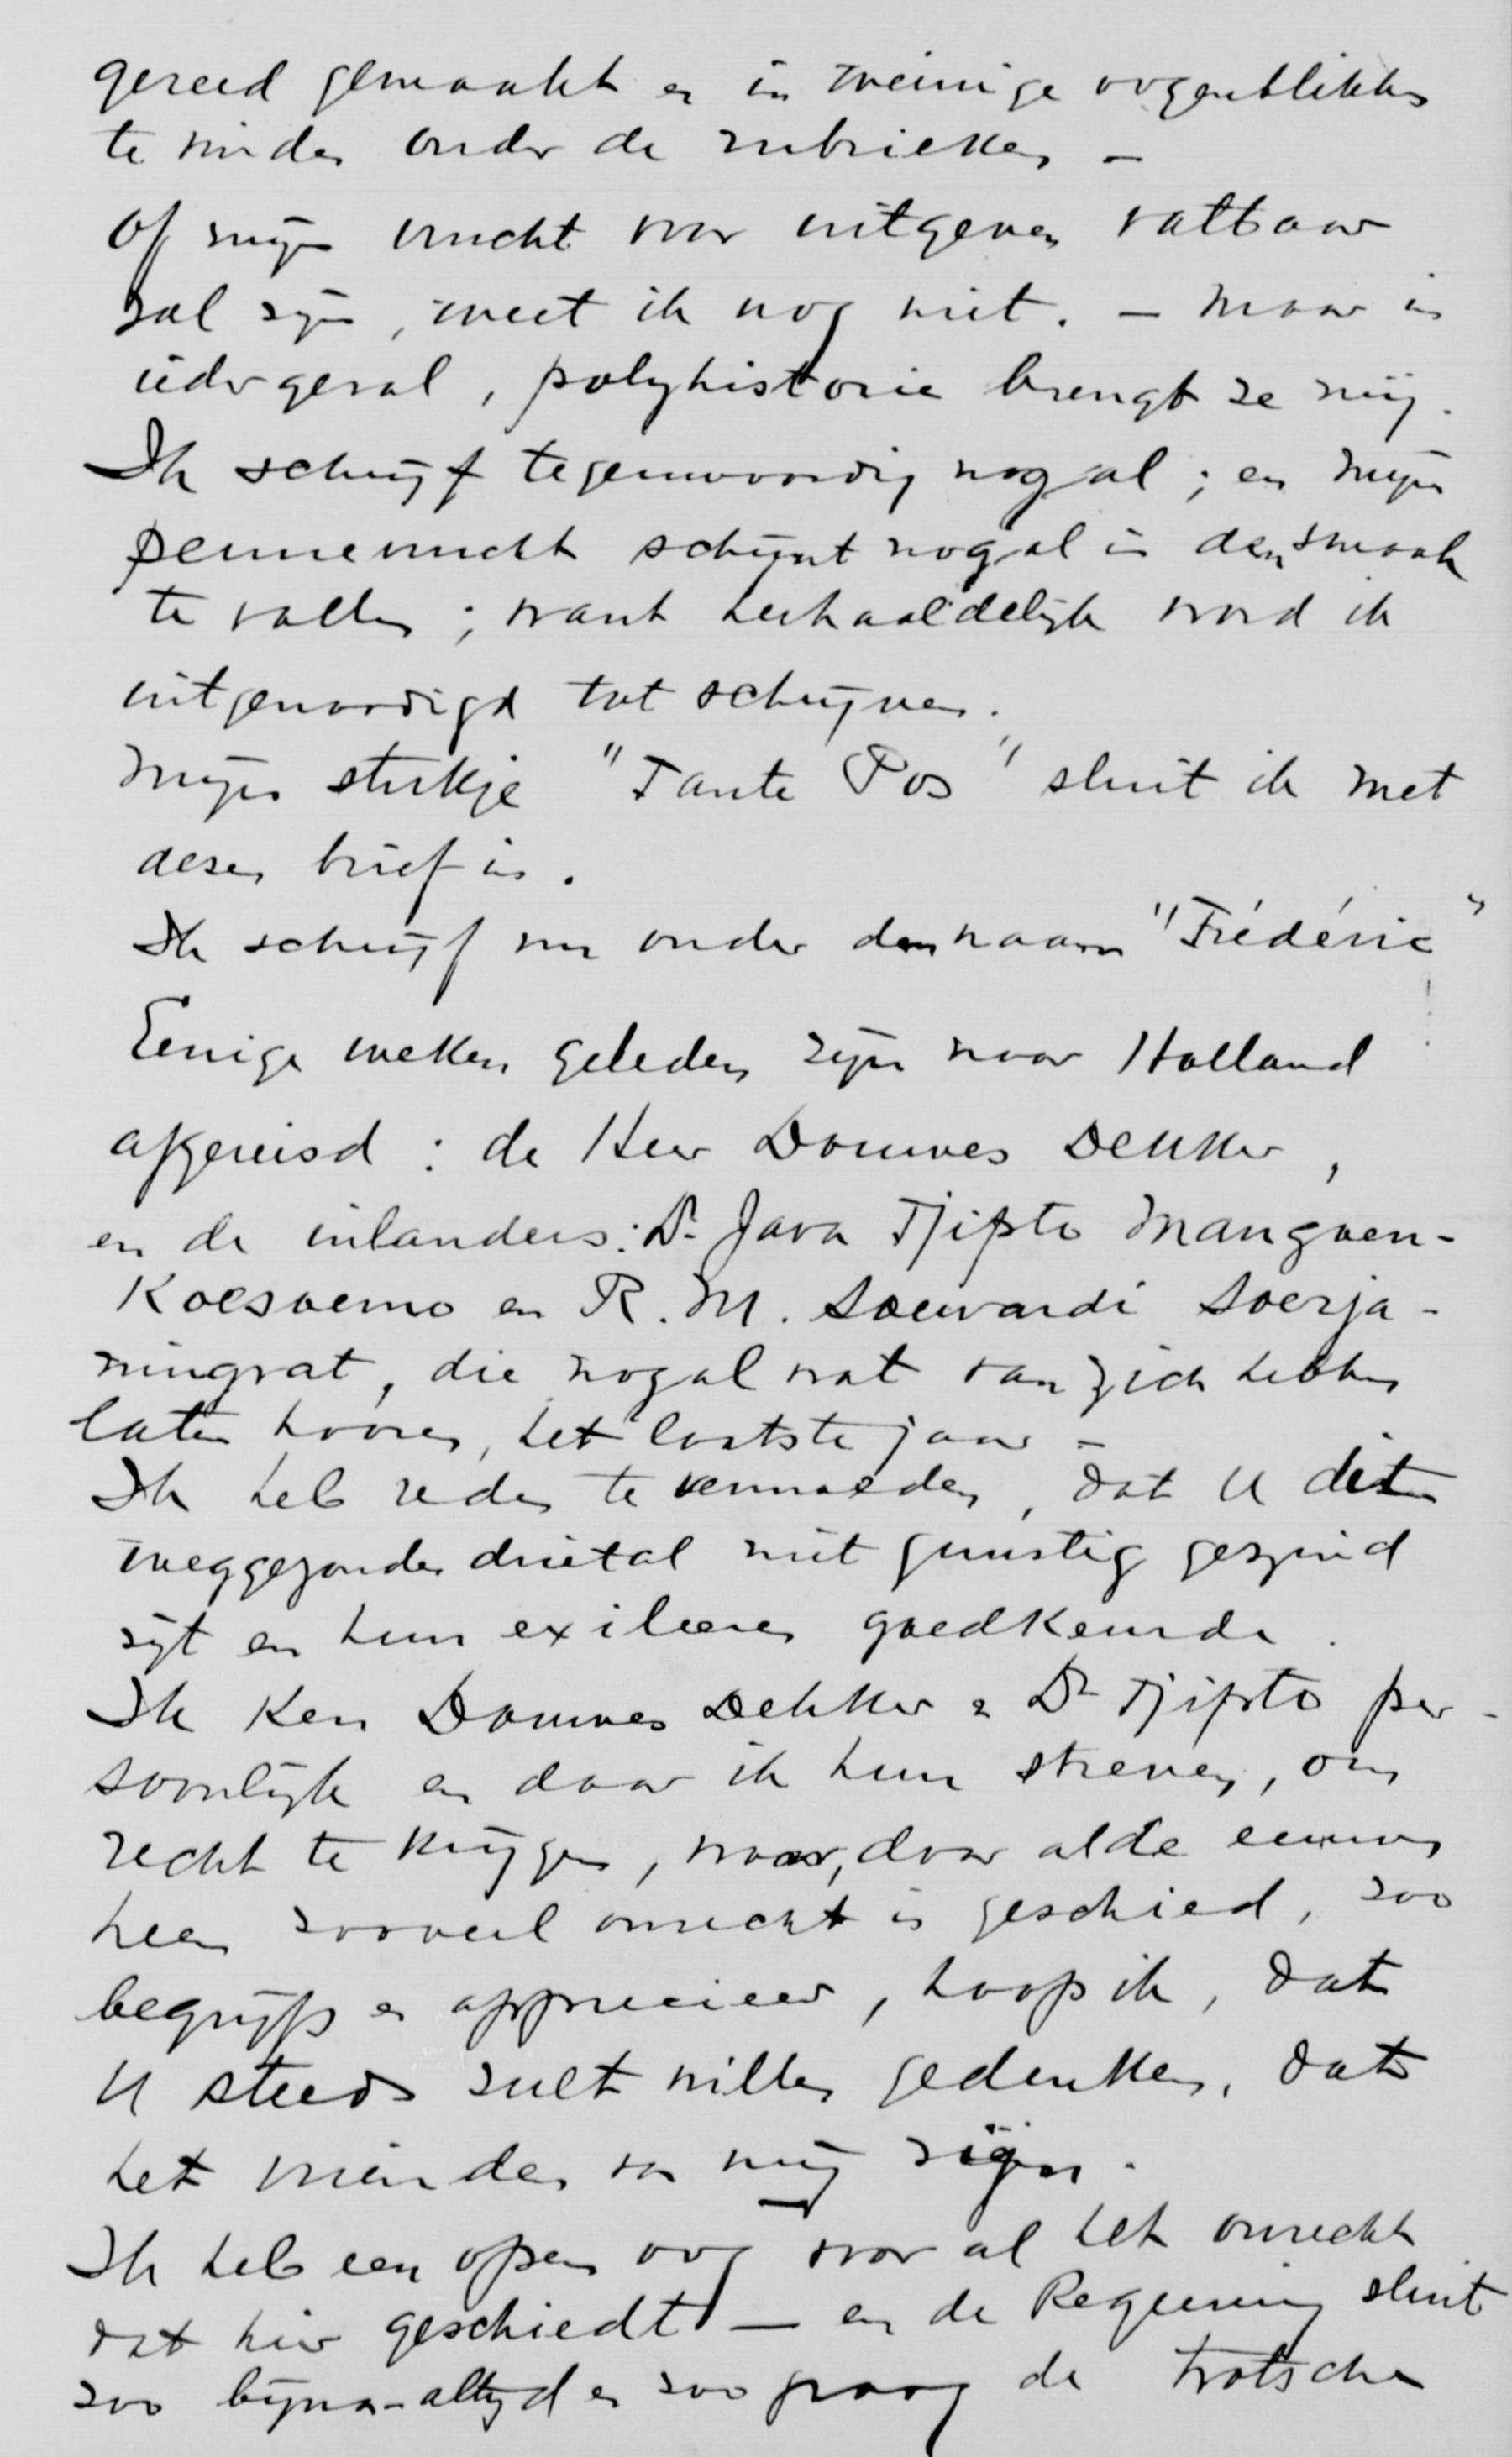 gereed gemaakt en in weinige oogenblikken
te vinden onder de rubrieken —
Of mijn vrucht voor uitgeven vatbaar
zal zijn, weet ik nog niet. — Maar in
ieder geval, polyhistorie brengt ze mij.
Ik schrijf tegenwoordig nogal; en mijn
pennevrucht schijnt nogal in den smaak
te vallen; want herhaaldelijk word ik
uitgenoodigd tot schrijven.
Mijn stukje "Tante Pos" sluit ik met
dezen brief in.
Ik schrijf nu onder den naam "Frédéric"
Eenige weken geleden zijn naar Holland
afgereisd: de Heer Douwes Dekker,
en de inlanders: Dr. Java Tjipto Mangoen-
Koesoemo en R. M. Soewardi Soerja-
ningrat, die nogal wat van zich hebben
laten hooren, het laatste jaar —
Ik heb reden te vermoeden, dat U dit
weggezonden drietal niet gunstig gezind
zijt en hun exileeren goedkeurde.
Ik Ken Douwes Dekker & Dr Tjipto per-
soonlijk en daar ik hun streven, om
recht te krijgen, waar, door al de eeuwen
heen zooveel onrecht is geschied, zoo
begrijp en apprecieer, hoop ik, dat
U steeds zult willen gedenken, dat
het vrienden van mij zijn.
Ik heb een open oog voor al het onrecht
dat hier geschiedt — en de Regeering sluit
zoo bijna-altijd en zoo graag de trotsche